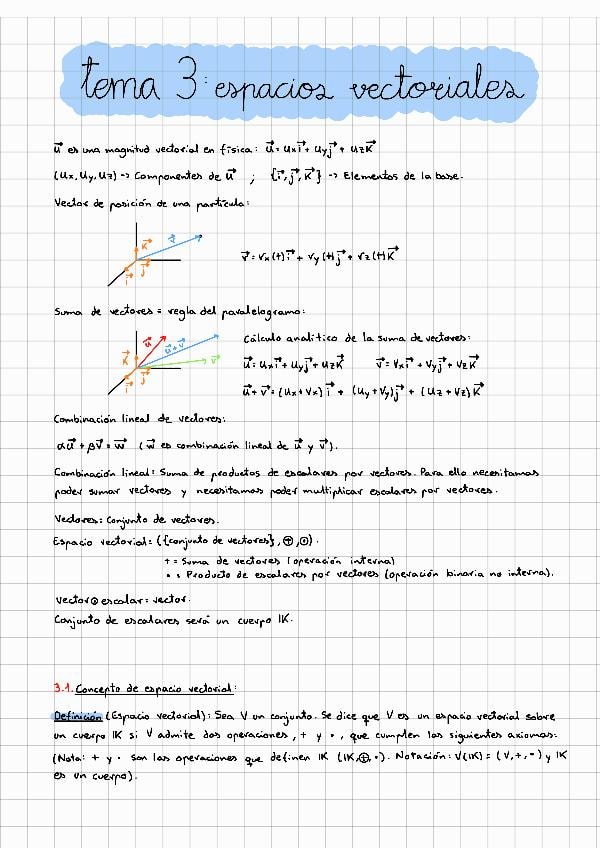 tema 3: espacios vectoriales
u⃗ es una magnitud vectorial en física: u⃗ = uxi⃗ + uyj⃗ + uzk⃗
(ux, uy, uz) -> Componentes de u⃗ ; {i⃗, j⃗, k⃗} -> Elementos de la base.
Vector de posición de una partícula:
k⃗ r⃗
i⃗ j⃗
r⃗ = rx(t)i⃗ + ry(t)j⃗ + rz(t)k⃗
Suma de vectores = regla del paralelogramo:
k⃗ u⃗ u⃗+v⃗ v⃗
i⃗ j⃗
Cálculo analítico de la suma de vectores:
u⃗ = uxi⃗ + uyj⃗ + uzk⃗ v⃗ = vxi⃗ + vyj⃗ + vzk⃗
u⃗ + v⃗ = (ux+vx)i⃗ + (uy+vy)j⃗ + (uz+vz)k⃗
Combinación lineal de vectores:
αu⃗ + βv⃗ = w⃗ (w⃗ es combinación lineal de u⃗ y v⃗).
Combinación lineal: Suma de productos de escalares por vectores. Para ello necesitamos
poder sumar vectores y necesitamos poder multiplicar escalares por vectores.
Vectores: Conjunto de vectores.
Espacio vectorial: ({conjunto de vectores}, ⊕, ⊙).
+ = Suma de vectores (operación interna)
• = Producto de escalares por vectores (operación binaria no interna).
vector ⊙ escalar = vector.
Conjunto de escalares será un cuerpo IK.
3.1. Concepto de espacio vectorial:
Definición (Espacio vectorial): Sea V un conjunto. Se dice que V es un espacio vectorial sobre
un cuerpo IK si V admite dos operaciones, + y •, que cumplen los siguientes axiomas:
(Nota: + y • son las operaciones que definen IK (IK, ⊕, •). Notación: V(IK) = (V, +, •) y IK
es un cuerpo).